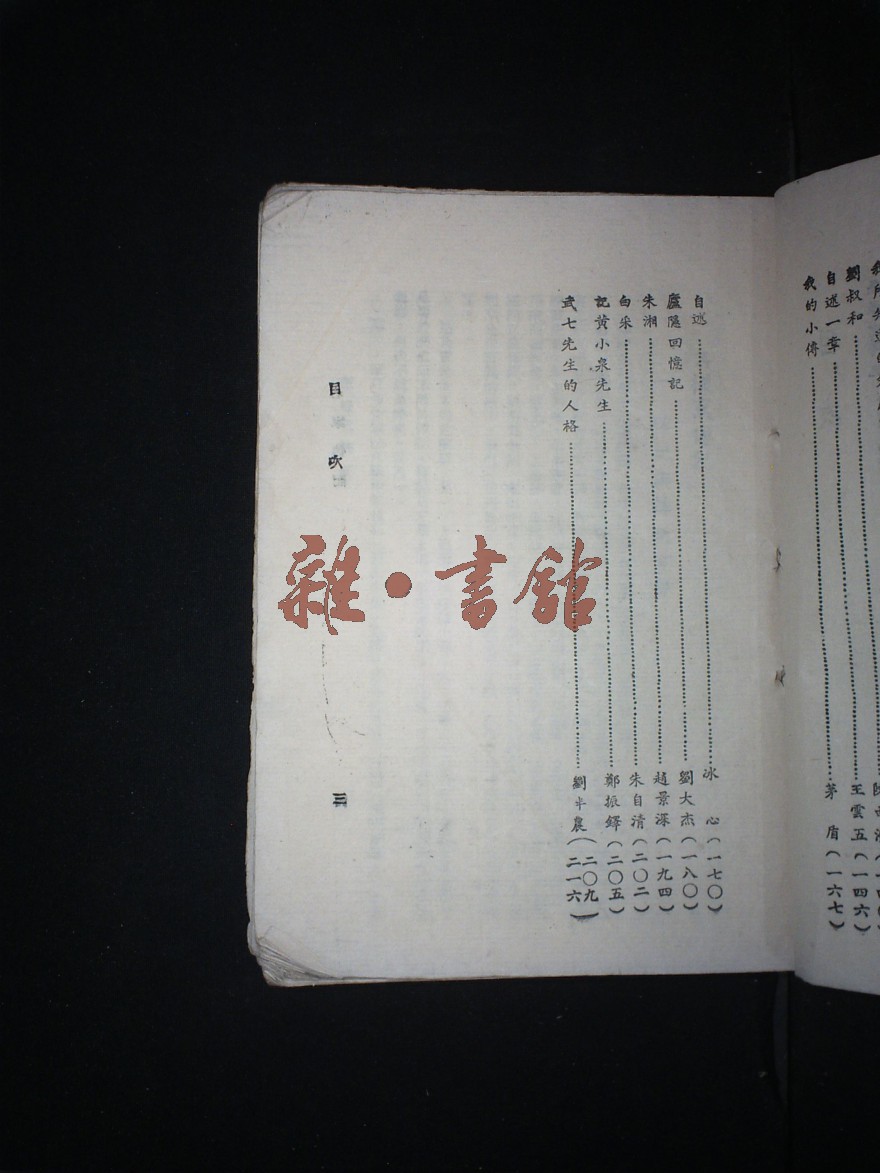 劉叔和
自述一章……王雲五(一四六)
我的小傳……茅盾(一六七)
自述……冰心(一七〇)
廬隱回憶記……劉大杰(一八〇)
朱湘……趙景深(一九四)
白采……朱自清(二〇二)
記黃小泉先生……鄭振鐸(二〇五)
武七先生的人格……劉半農(二〇九—二一六)
目次
三
雜·書館